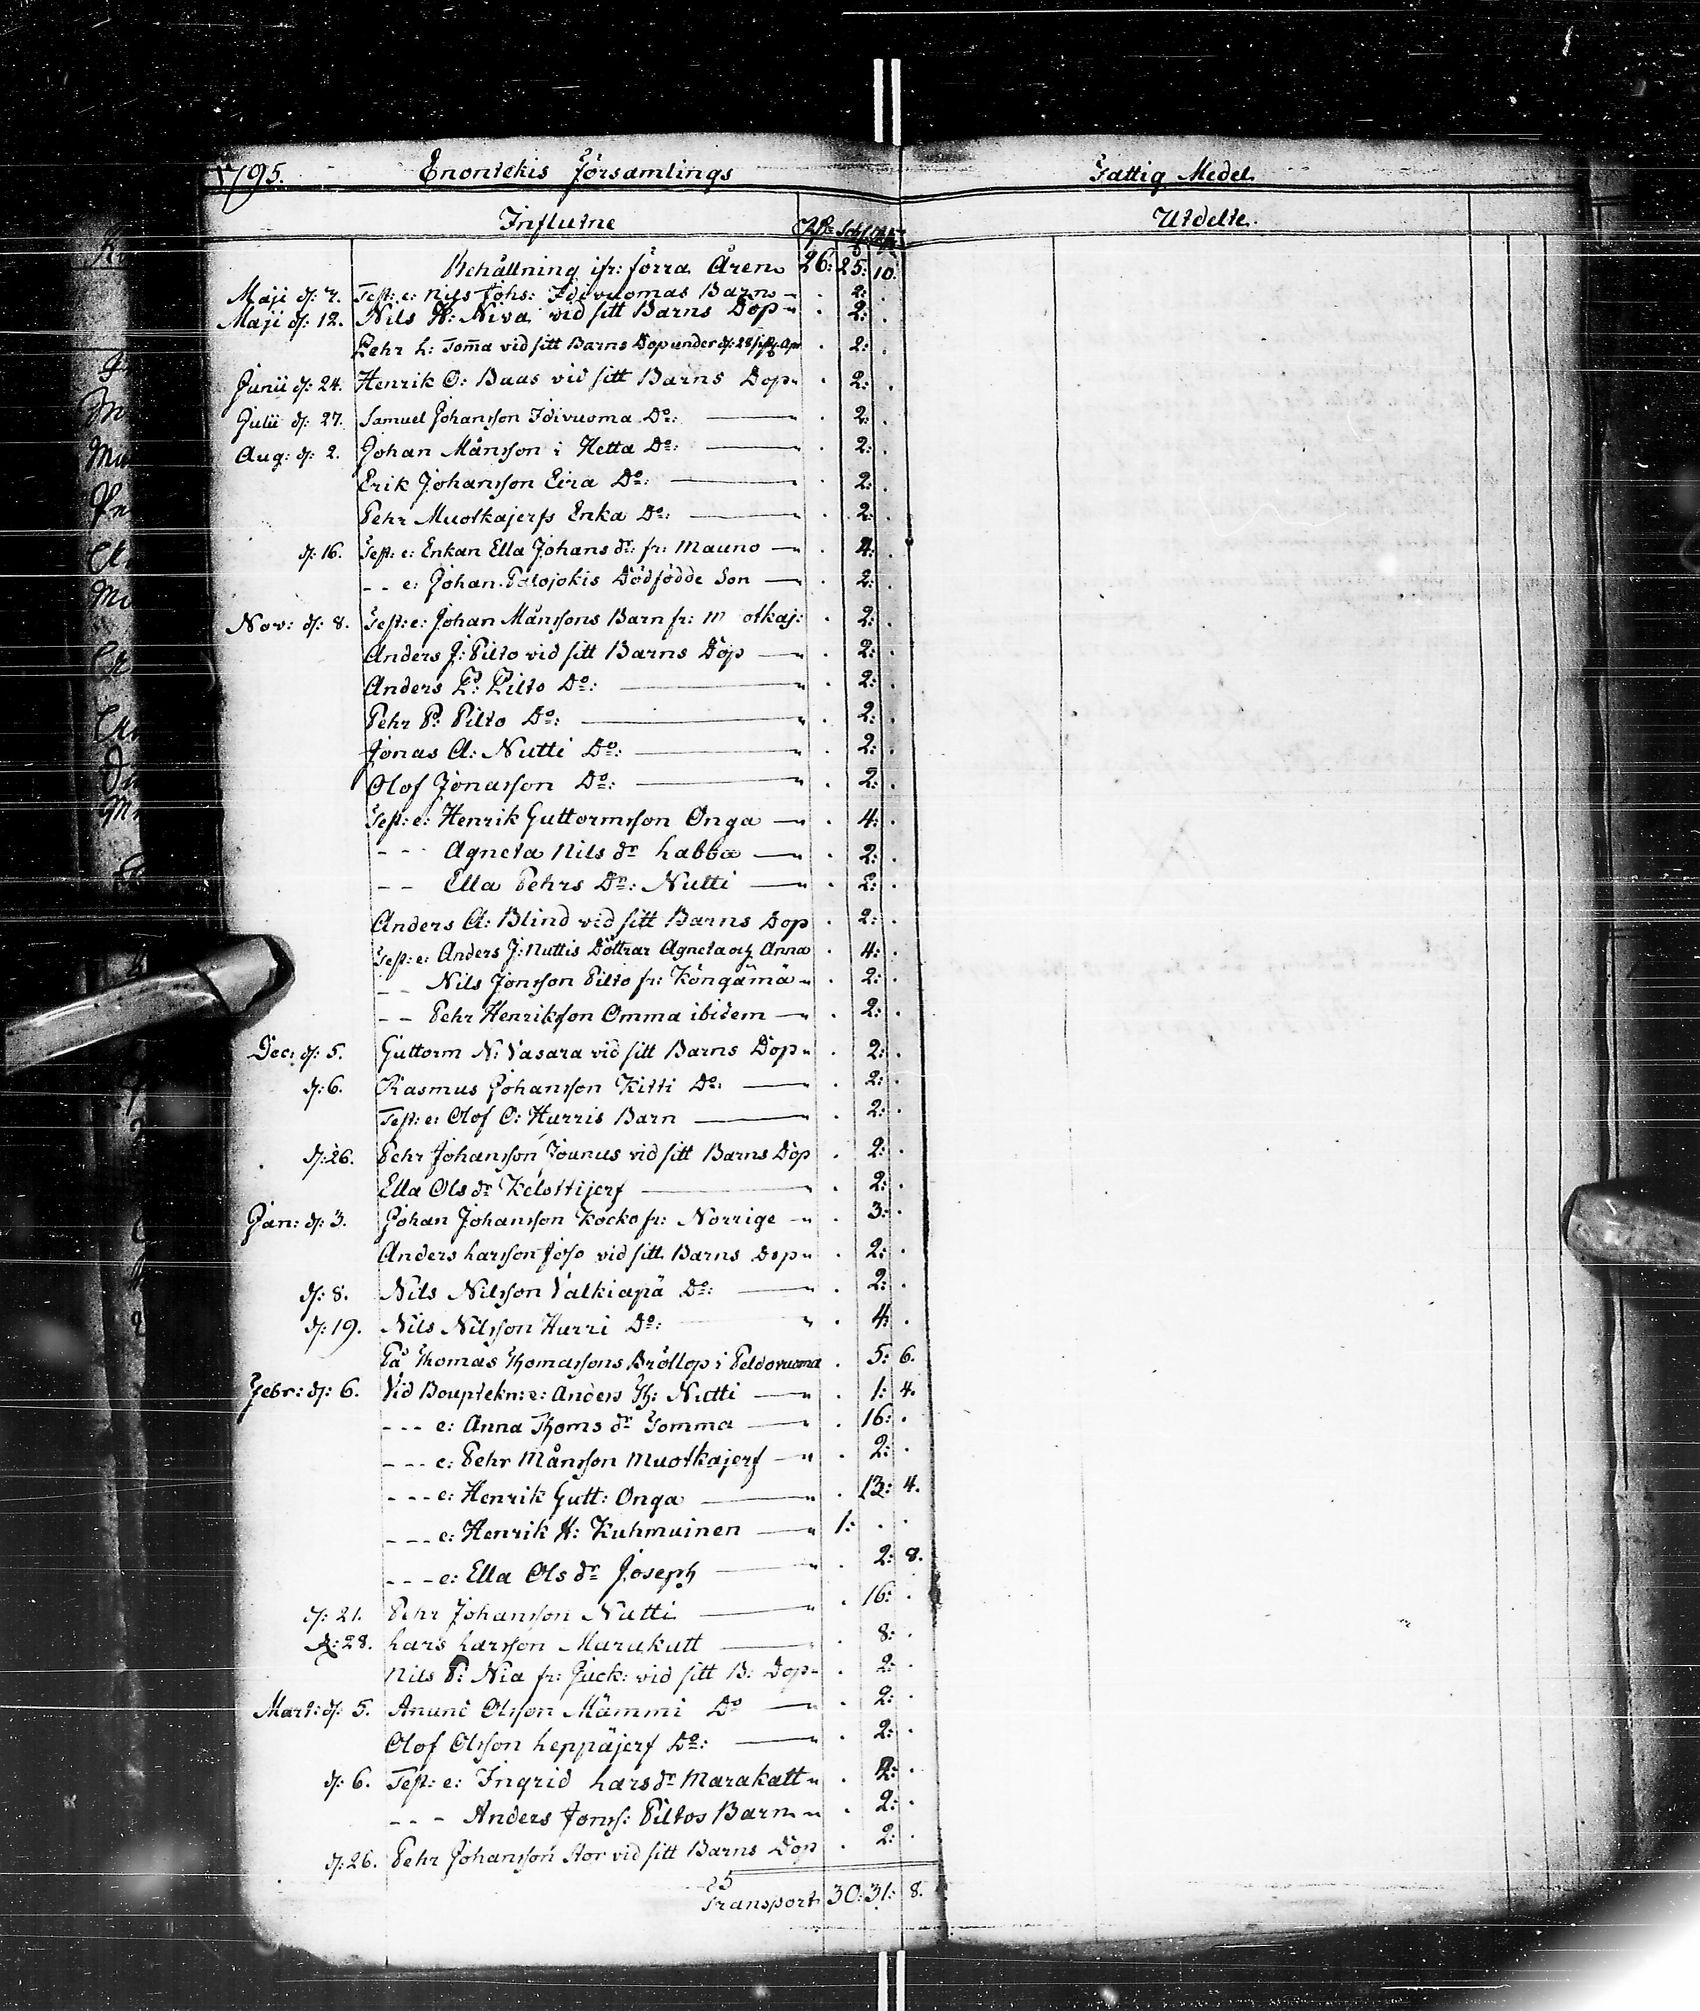 1795. Enontekis Församlings Fattig Medel.
Influtne Rdr Sch. rst. Utdelte.
Behållning ifr: förra Åren 26: 25: 10:
Maji d: 7. Test: e: Nils Johs: Idivuomas Barn 2:
Maji d: 12. Nils H: Niva vid sitt Barns Dop 2:
Pehr L: Tom̄a vid sitt Barns Dop under d: 28 2:
Junii d: 24. Henrik O: Baas vid sitt Barns Dop 2:
Julii d: 27. Samuel Johansson Idivuoma Do: 2:
Aug: d: 2. Johan Månsson i Hetta Do: 2:
Erik Johansson Eira Do: 2:
Pehr Muotkajerfs Enka Do: 2:
d: 16. Test: e: Enkan Ella Johans dr: fr: Mauno 4:
- - e: Johan Palojokis Dödfödde Son 2:
Nov: d: 8. Test: e: Johan Månssons Barn fr: M otkaj: 2:
Anders J: Pilto vid sitt Barns Dop 2:
Anders P: Pilto Do: 2:
Pehr P: Pilto Do: 2:
Jonas A: Nutti Do: 2:
Olof Jonasson Do: 2:
Test: e: Henrik Guttormsson Onga 4:
- - Agneta Nils dr Labba 2:
- - Ella Pehrs Dr: Nutti 2:
Anders A: Blind vid sitt Barns Dop 2:
Test: e: Anders J: Nuttis Döttrar Agneta och Anna 4:
- - Nils Jonsson Pilto fr: Köngämä 2:
- - Pehr Henriksson Omma ibidem 2:
Dec: d: 5. Guttorm N: Vasara vid sitt Barns Dop 2:
d: 6. Rasmus Johansson Kitti Do: 2:
Test: e: Olof O: Hurris Barn 2:
d: 26. Pehr Johansson Jounus vid sitt Barns Dop 2:
Ella Ols dr Kelottijerf 2:
Jan: d: 3. Johan Johansson Kocko fr: Norrige 3:
Anders Larsson Joso vid sitt Barns Dop 2:
d: 8. Nils Nilsson Valkiapä Do: 2:
d: 19. Nils Nilsson Hurri Do: 4:
På Thomas Thomassons Bröllop i Peldovuoma 5: 6.
Febr: d: 6. Vid Bouptekn: e: Anders Th: Nutti 1: 4.
- - - e: Anna Thoms dr Tomma 16:
- - - e: Pehr Månsson Muotkajerf 2:
- - - e: Henrik Gutt: Onga 13: 4.
- - - e: Henrik H: Kuhmuinen 1:
- - - e: Ella Ols dr Joseph 2: 8.
d: 21. Pehr Johansson Nutti 16:
d: 28. Lars Larsson Marakatt 8:
Nils P: Nia fr: Juck: vid sitt B: Dop 2:
Mart: d: 5. Anund Olsson Mämmi Do 2:
Olof Olsson Leppäjerf Do: 2:
d: 6. Test: e: Ingrid Lars dr Marakatt 2:
- - - Anders Jonss: Piltos Barn 2:
d: 26. Pehr Johansson Stor vid sitt Barns Dop 2:
Transport 30: 31: 8.